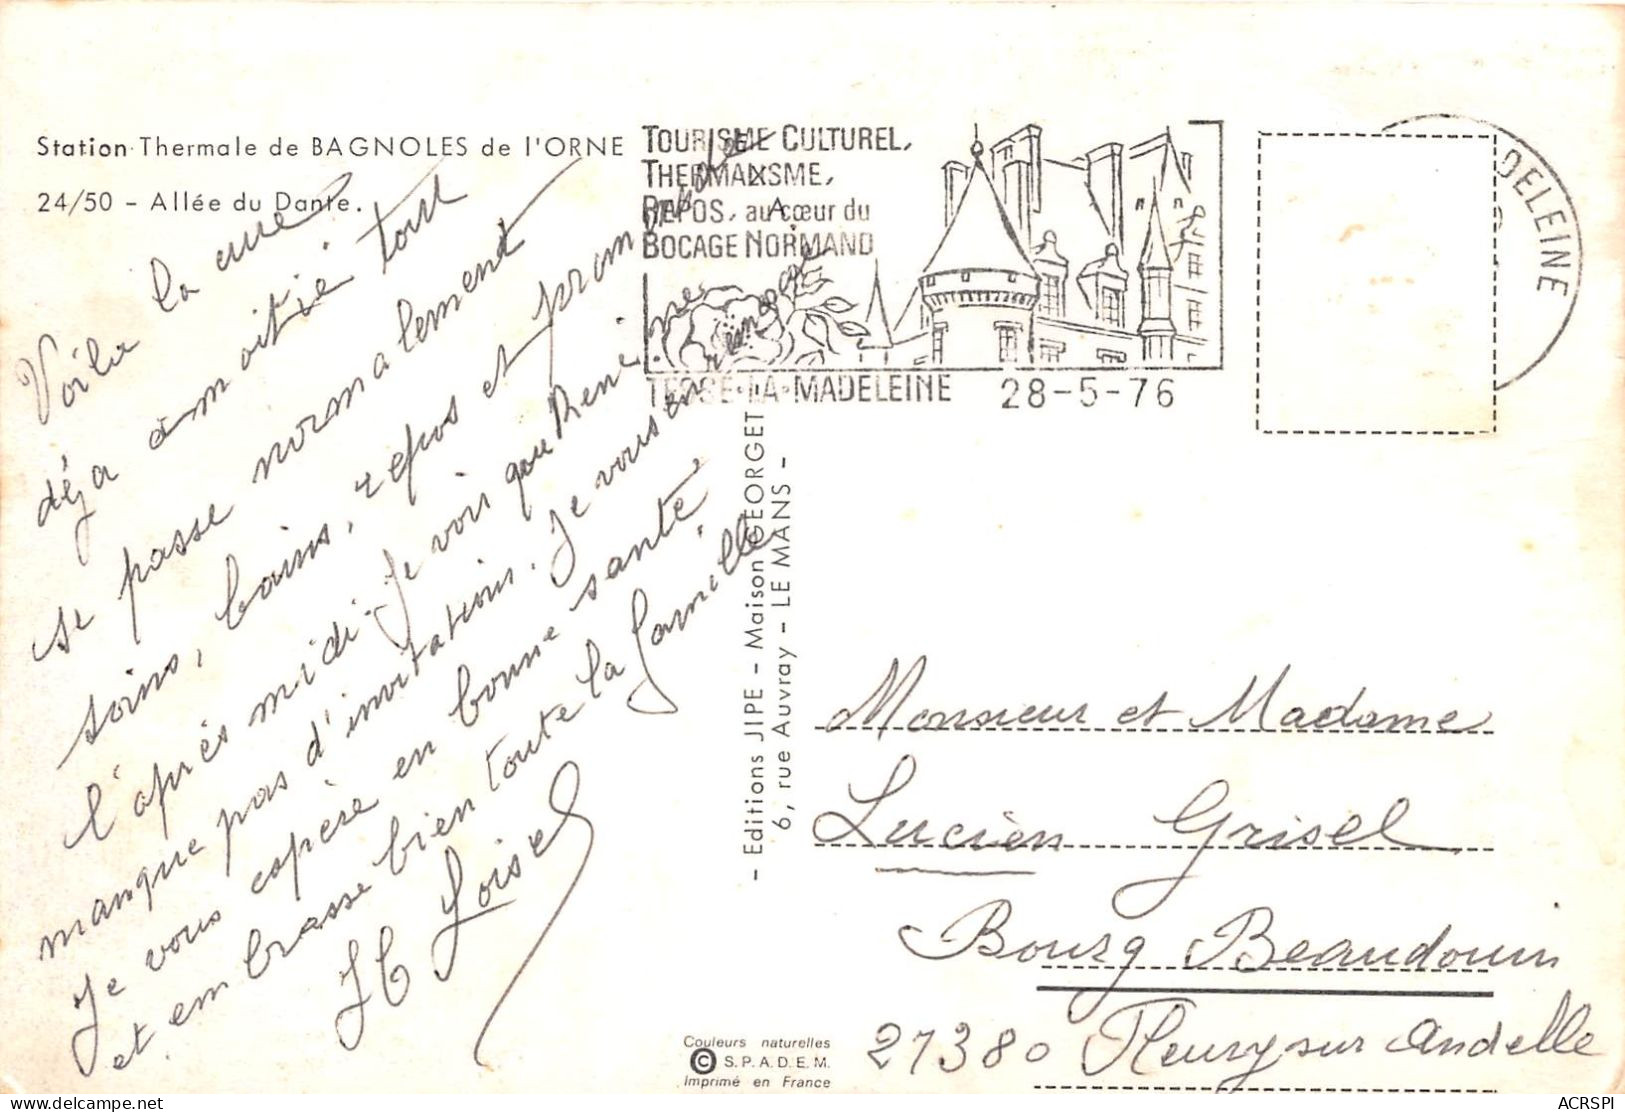 Station Thermale de BAGNOLES de l'ORNE
24/50 - Allée du Dante.
Voila la cure
déja a moitié tout
se passe normalement
soins, bains, repos et promenade
l'après midi. Je vois que René ne
manque pas d'invitations. Je vous en
Je vous espère en bonne santé.
et embrasse bien toute la famille
H Loisel
TOURISME CULTUREL,
THERMALISME,
REPOS, au cœur du
BOCAGE NORMAND
TESSÉ-LA-MADELEINE 28-5-76
DELEINE
- Editions JIPE - Maison GEORGET
6, rue Auvray - LE MANS -
Monsieur et Madame
Lucien Grisel
Bourg Beaudouin
27380 Fleury sur Andelle
Couleurs naturelles
© S.P.A.D.E.M.
Imprimé en France
delcampe.net
ACRSPI